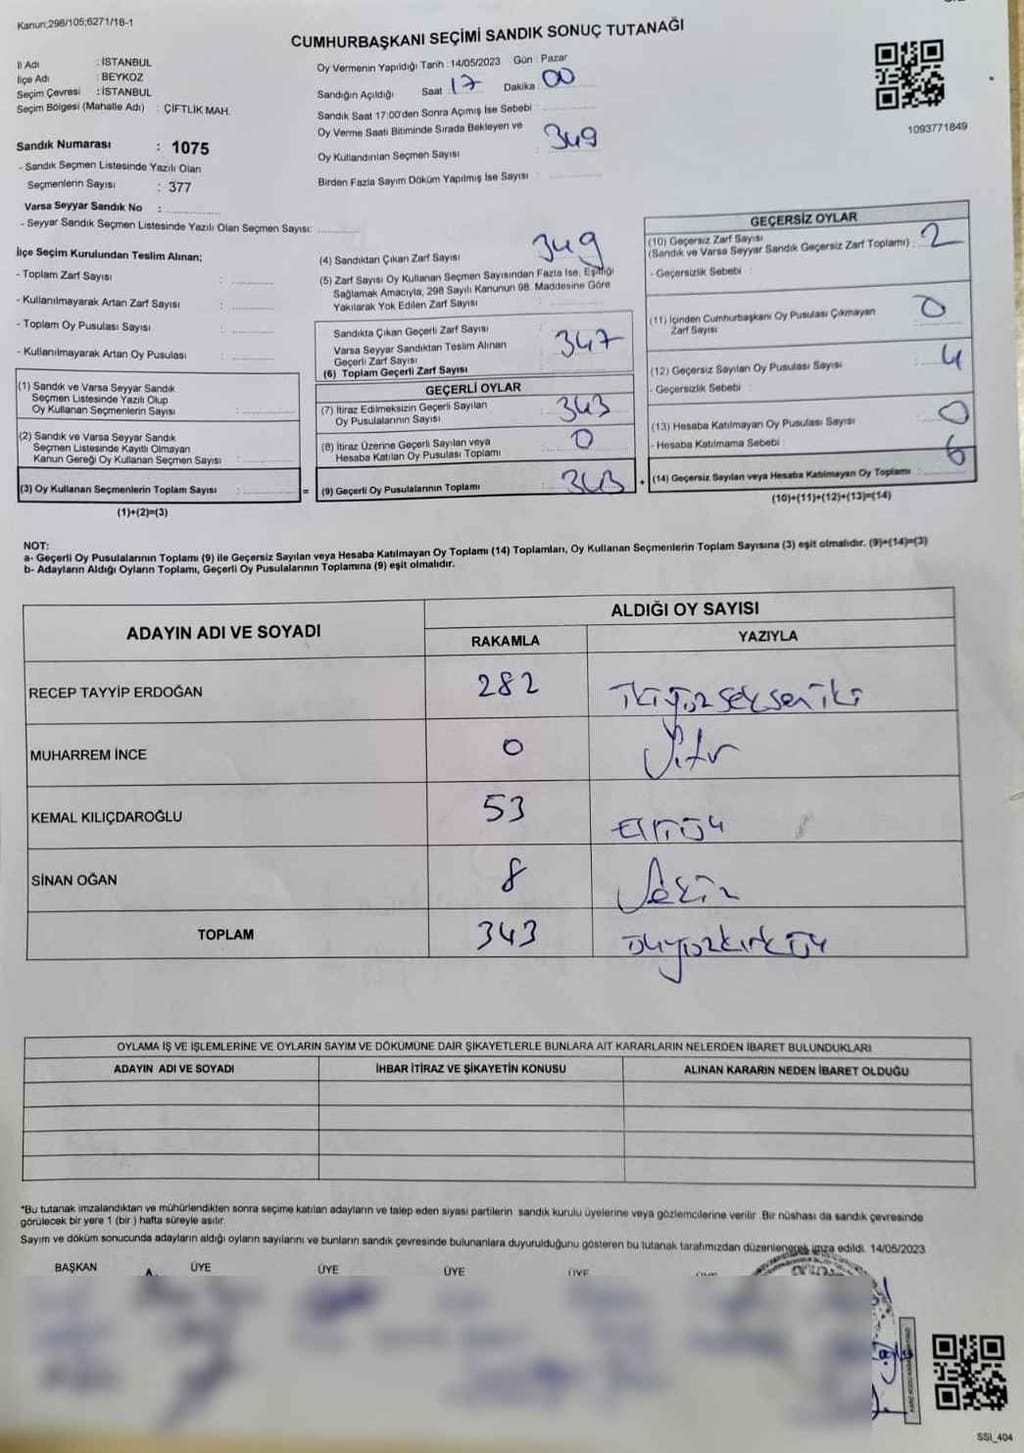 Kanun;298/105;6271/18-1
CUMHURBAŞKANI SEÇİMİ SANDIK SONUÇ TUTANAĞI
İl Adı : İSTANBUL
İlçe Adı : BEYKOZ
Seçim Çevresi : İSTANBUL
Seçim Bölgesi (Mahalle Adı) : ÇİFTLİK MAH.
Sandık Numarası : 1075
- Sandık Seçmen Listesinde Yazılı Olan
Seçmenlerin Sayısı : 377
Varsa Seyyar Sandık No :
- Seyyar Sandık Seçmen Listesinde Yazılı Olan Seçmen Sayısı:
Oy Vermenin Yapıldığı Tarih :14/05/2023 Gün : Pazar
Sandığın Açıldığı Saat 17 Dakika 00
Sandık Saat 17:00'den Sonra Açımış İse Sebebi
Oy Verme Saati Bitiminde Sırada Bekleyen ve
Oy Kullandırılan Seçmen Sayısı : 349
Birden Fazla Sayım Döküm Yapılmış İse Sayısı :
1093771849
İlçe Seçim Kurulundan Teslim Alınan;
- Toplam Zarf Sayısı :
- Kullanılmayarak Artan Zarf Sayısı :
- Toplam Oy Pusulası Sayısı :
- Kullanılmayarak Artan Oy Pusulası :
(1) Sandık ve Varsa Seyyar Sandık
Seçmen Listesinde Yazılı Olup
Oy Kullanan Seçmenlerin Sayısı :
(2) Sandık ve Varsa Seyyar Sandık
Seçmen Listesinde Kayıtlı Olmayan
Kanun Gereği Oy Kullanan Seçmen Sayısı :
(3) Oy Kullanan Seçmenlerin Toplam Sayısı :
(1)+(2)=(3)
(4) Sandıktan Çıkan Zarf Sayısı : 349
(5) Zarf Sayısı Oy Kullanan Seçmen Sayısından Fazla İse, Eşitliği
Sağlamak Amacıyla, 298 Sayılı Kanunun 98. Maddesine Göre
Yakılarak Yok Edilen Zarf Sayısı :
Sandıkta Çıkan Geçerli Zarf Sayısı
Varsa Seyyar Sandıktan Teslim Alınan
Geçerli Zarf Sayısı
(6) Toplam Geçerli Zarf Sayısı 347
GEÇERLİ OYLAR
(7) İtiraz Edilmeksizin Geçerli Sayılan
Oy Pusulalarının Sayısı : 343
(8) İtiraz Üzerine Geçerli Sayılan veya
Hesaba Katılan Oy Pusulası Toplamı : 0
= (9) Geçerli Oy Pusulalarının Toplamı : 343 +
GEÇERSİZ OYLAR
(10) Geçersiz Zarf Sayısı
(Sandık ve Varsa Seyyar Sandık Geçersiz Zarf Toplamı) : 2
- Geçersizlik Sebebi :
(11) İçinden Cumhurbaşkanı Oy Pusulası Çıkmayan
Zarf Sayısı 0
(12) Geçersiz Sayılan Oy Pusulası Sayısı : 4
- Geçersizlik Sebebi :
(13) Hesaba Katılmayan Oy Pusulası Sayısı : 0
- Hesaba Katılmama Sebebi :
(14) Geçersiz Sayılan veya Hesaba Katılmayan Oy Toplamı : 6
(10)+(11)+(12)+(13)=(14)
NOT:
a- Geçerli Oy Pusulalarının Toplamı (9) ile Geçersiz Sayılan veya Hesaba Katılmayan Oy Toplamı (14) Toplamları, Oy Kullanan Seçmenlerin Toplam Sayısına (3) eşit olmalıdır. (9)+(14)=(3)
b- Adayların Aldığı Oyların Toplamı, Geçerli Oy Pusulalarının Toplamına (9) eşit olmalıdır.
ADAYIN ADI VE SOYADI ALDIĞI OY SAYISI
RAKAMLA YAZIYLA
RECEP TAYYİP ERDOĞAN 282 İkiyüzsekseniki
MUHARREM İNCE 0 Sıfır
KEMAL KILIÇDAROĞLU 53 Elliüç
SİNAN OĞAN 8 Sekiz
TOPLAM 343 üçyüzkırküç
OYLAMA İŞ VE İŞLEMLERİNE VE OYLARIN SAYIM VE DÖKÜMÜNE DAİR ŞİKAYETLERLE BUNLARA AİT KARARLARIN NELERDEN İBARET BULUNDUKLARI
ADAYIN ADI VE SOYADI İHBAR İTİRAZ VE ŞİKAYETİN KONUSU ALINAN KARARIN NEDEN İBARET OLDUĞU
*Bu tutanak imzalandıktan ve mühürlendikten sonra seçime katılan adayların ve talep eden siyasi partilerin sandık kurulu üyelerine veya gözlemcilerine verilir. Bir nüshası da sandık çevresinde
görülecek bir yere 1 (bir ) hafta süreyle asılır.
Sayım ve döküm sonucunda adayların aldığı oyların sayılarını ve bunların sandık çevresinde bulunanlara duyurulduğunu gösteren bu tutanak tarafımızdan düzenlenerek imza edildi. 14/05/2023
BAŞKAN ÜYE ÜYE ÜYE ÜYE
SSI_404